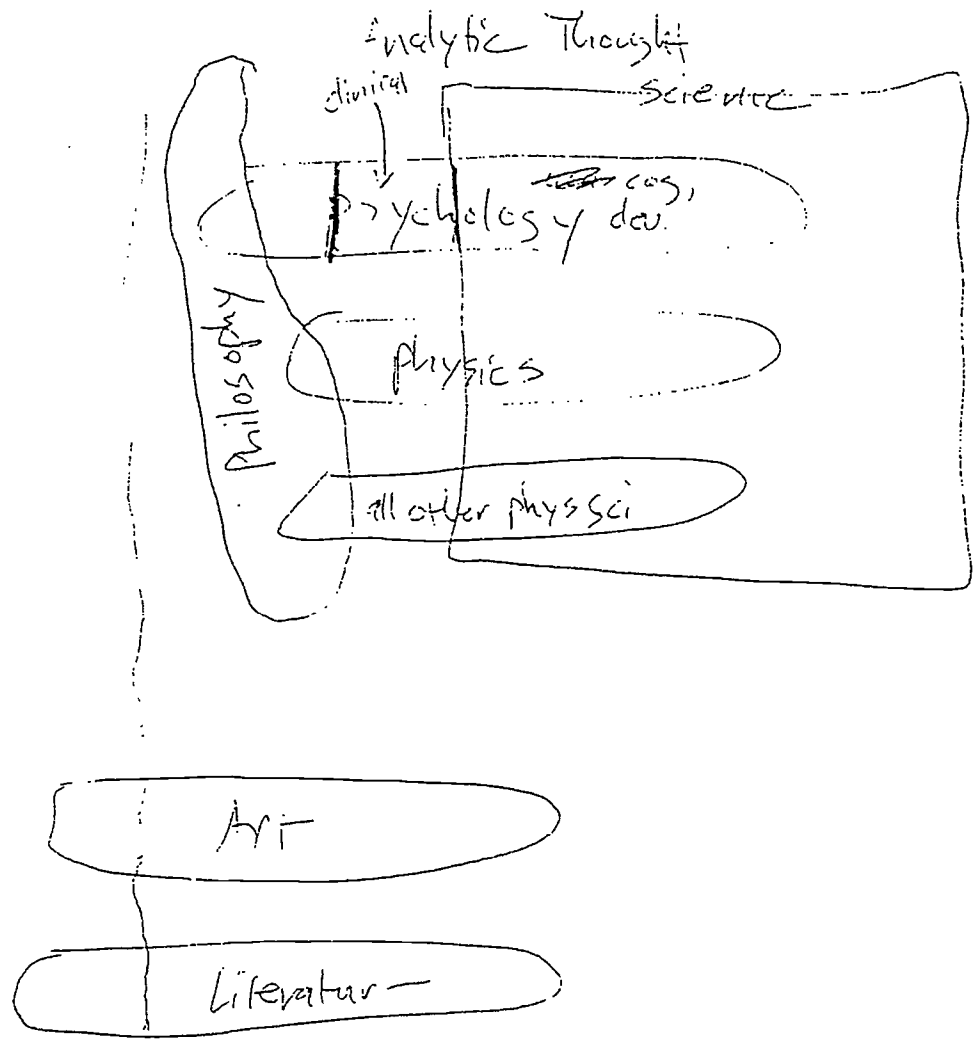 Analytic Thought
clinical
Science
cog,
Psychology dev.
Philosophy
physics
all other phys sci
Art
Literature